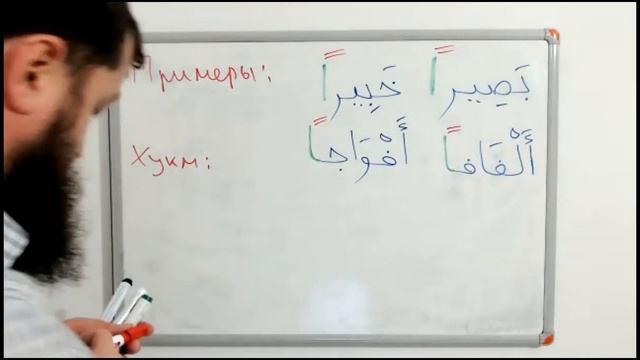 Примеры: بَصِيراً خَبِيراً
Хукм: أَلْفَافاً أَفْوَاجاً